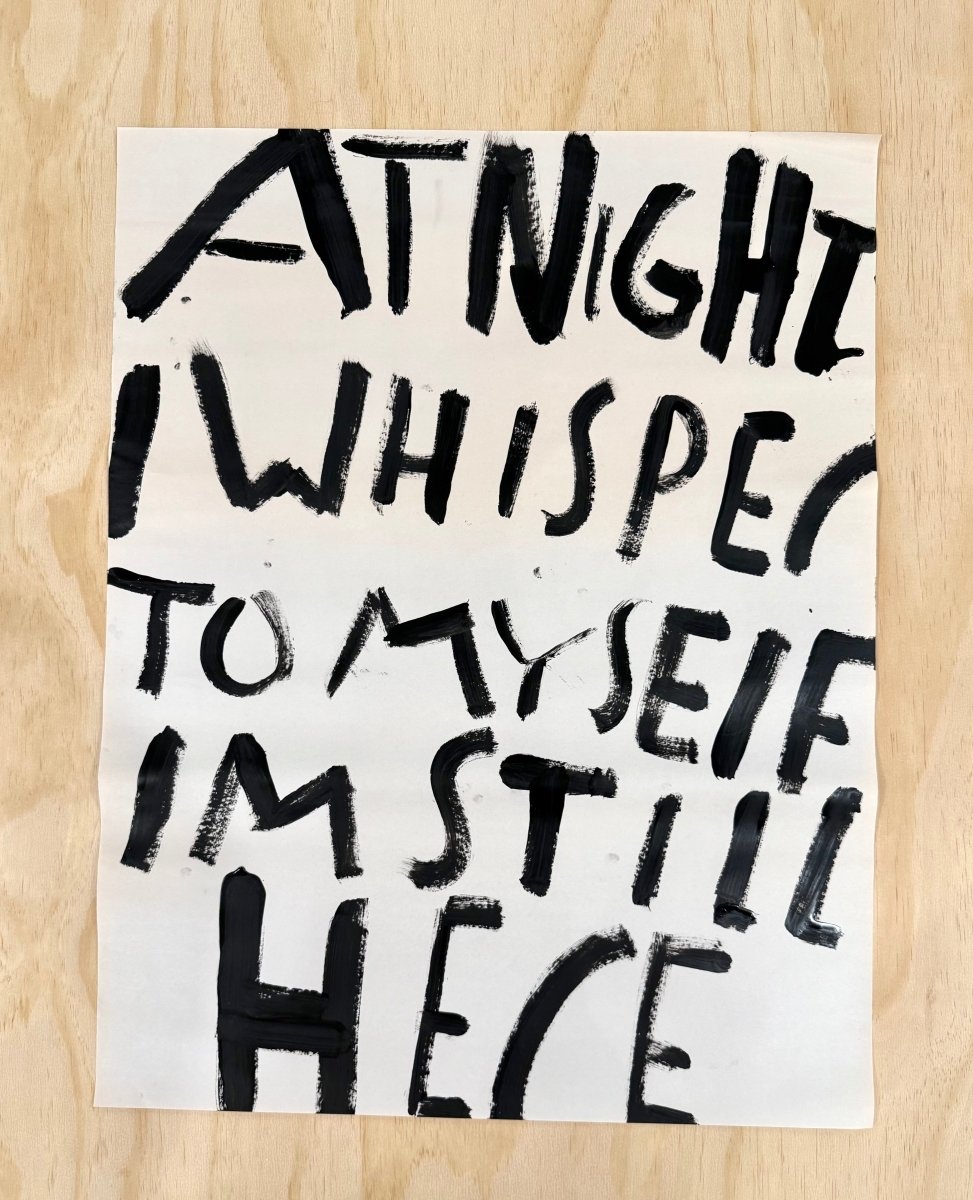 AT NIGHT
I WHISPER
TO MYSELF
IM STILL
HERE